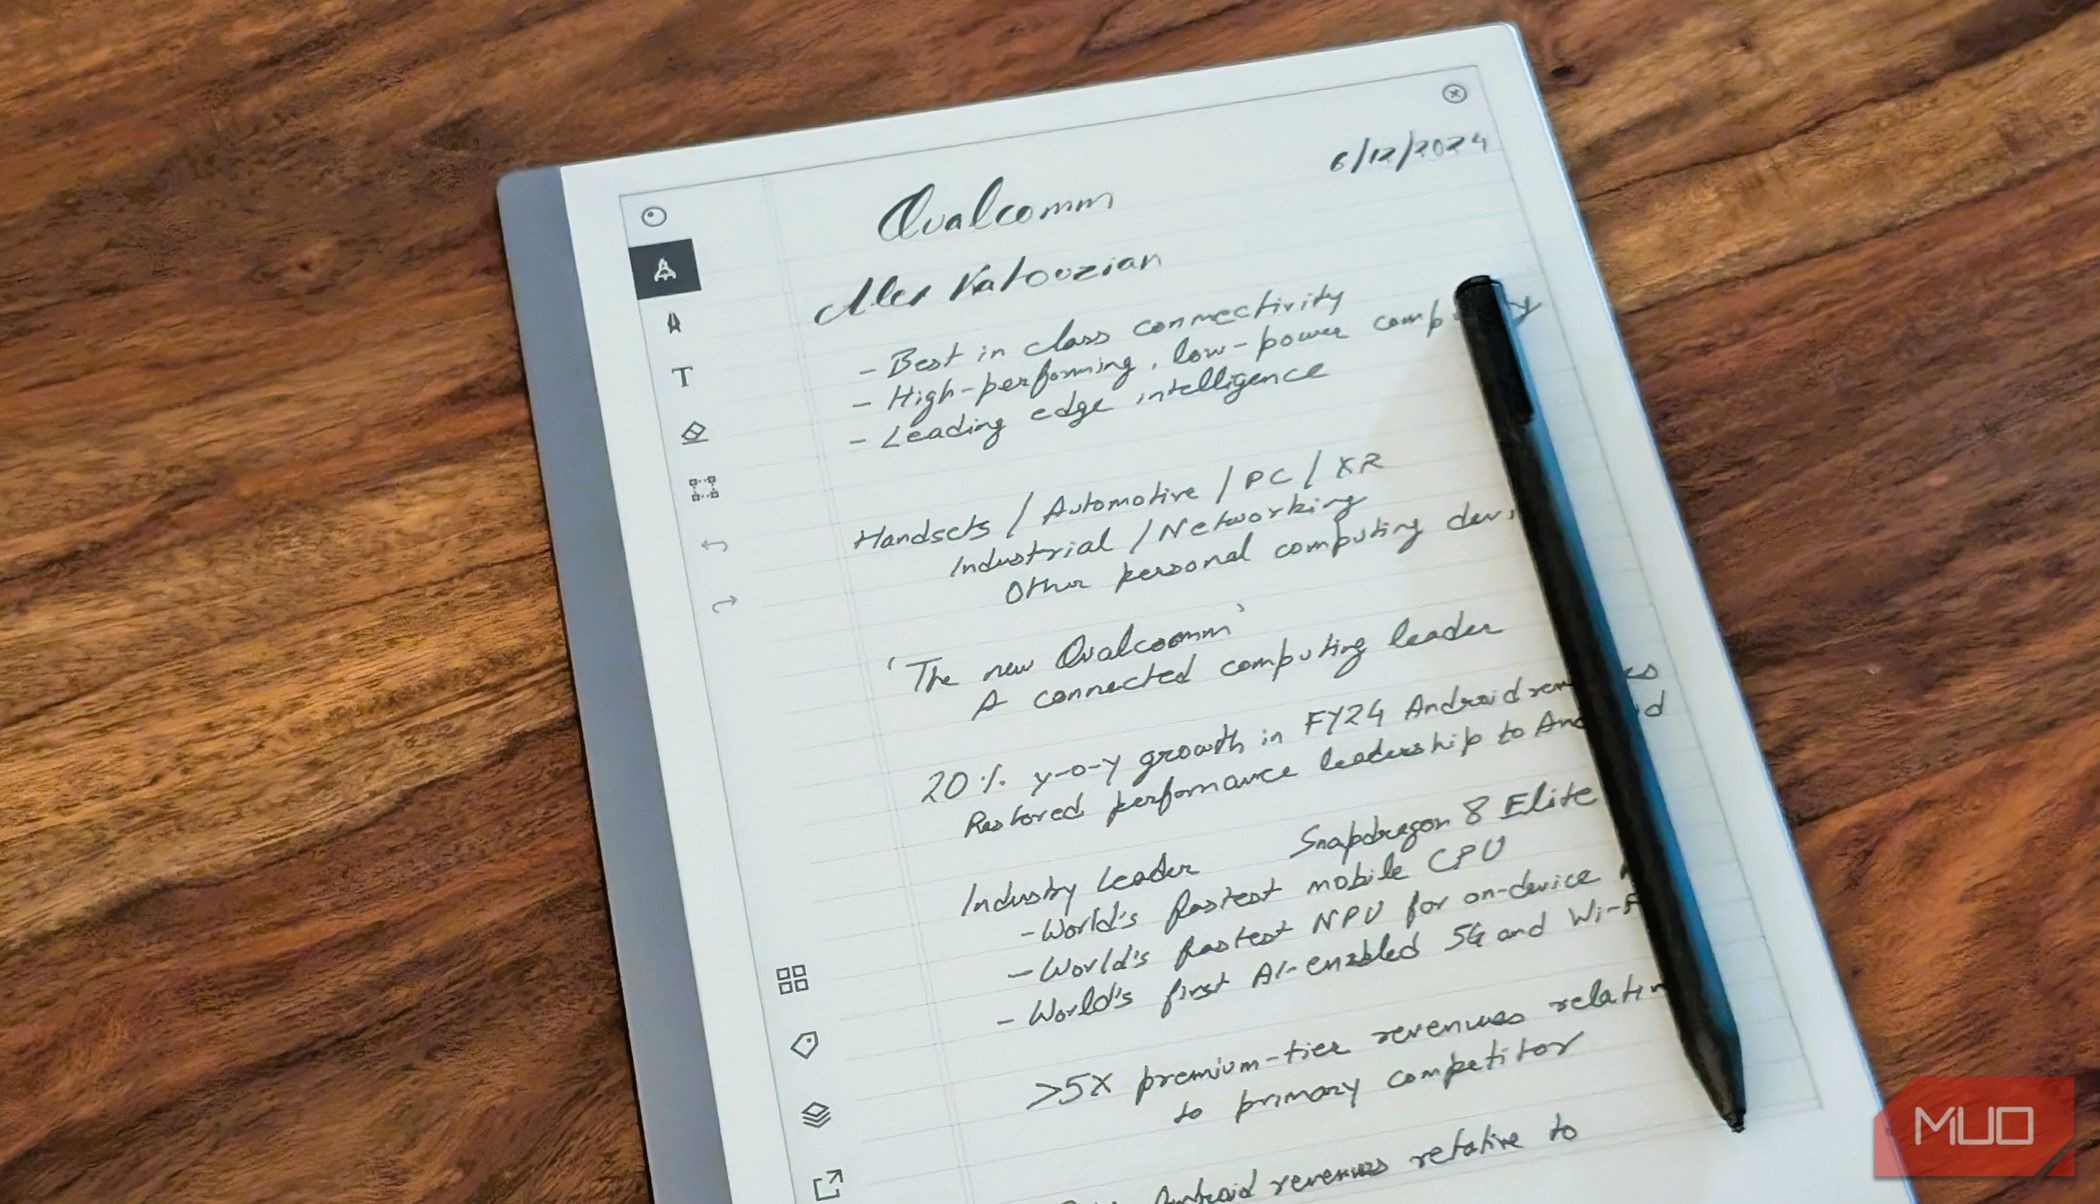 6/12/2024
Qualcomm
Alex Katouzian
- Best in class connectivity
- High-performing, low-power
- Leading edge intelligence
Handsets / Automotive / PC / XR
Industrial / Networking
Other personal computing
'The new Qualcomm'
A connected computing leader
20% y-o-y growth in FY24 Android
Restored performance leadership to
Industry Leader Snapdragon 8 Elite
- World's fastest mobile CPU
- World's fastest NPU for on-device
- World's first AI-enabled 5G and
>5X premium-tier revenues
to primary competitor
Android revenues relative to
T
MUO